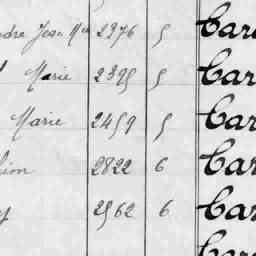 dre Jean Mie 2976 5 Car
Marie 2395 5 Car
Marie 2459 5 Car
2822 6 Car
2562 6 Car
Car